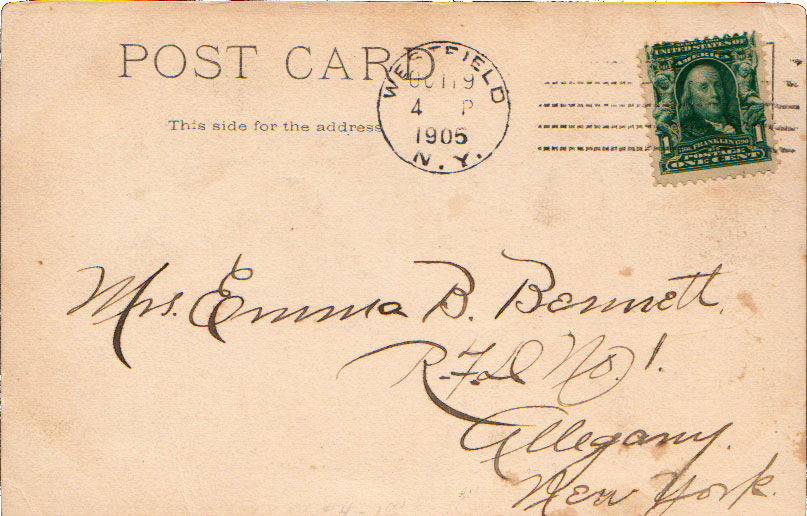 POST CARD
This side for the address
WESTFIELD
OCT 19
4 P
1905
N.Y.
UNITED STATES OF
AMERICA
1 FRANKLIN 1
POSTAGE
ONE CENT
Mrs. Emma B. Bennett.
R.F.D No. 1.
Allegany.
New York.